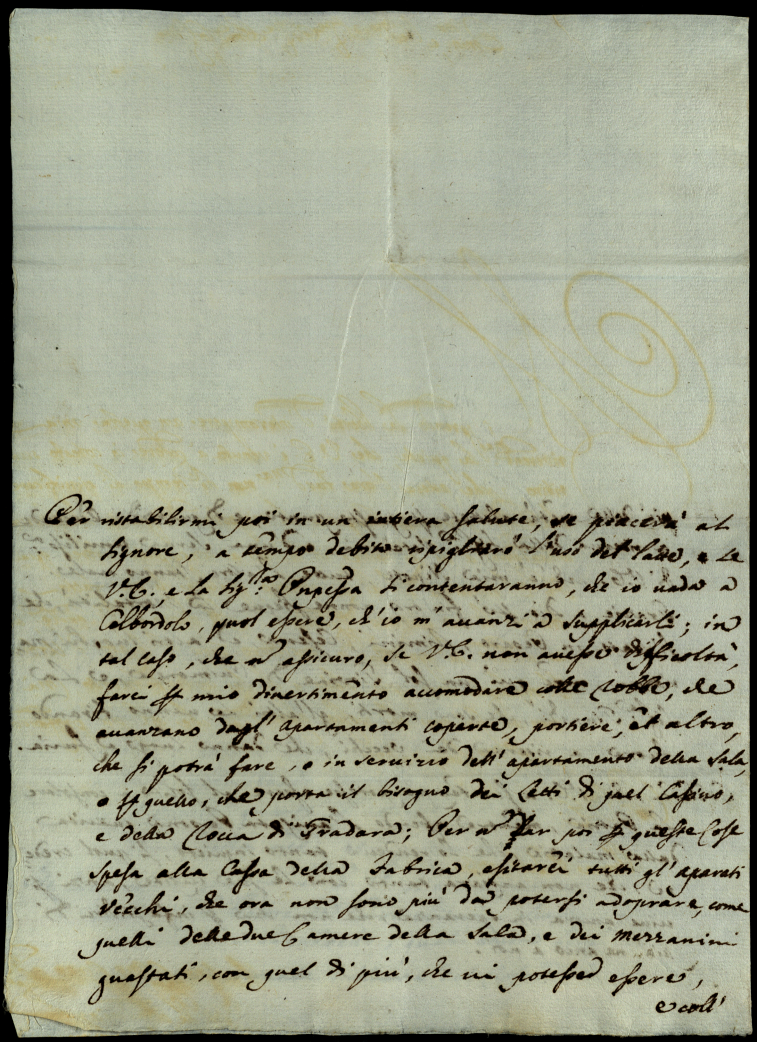 Per ristabilirmi poi in un intiera salute, se piacerà al
Signore, a tempo debito ripigliarò l'uso del latte, e se
V.E. e la Sig.ra Pnpessa si contentaranno, che io vada a
Colbordolo, puol essere, ch'io m'avanzi a supplicarli; in
tal caso, che m'assicuro, se V.E. non avesse difficoltà,
farei p mio divertimento accomodare colle robbe, che
avanzano dagl'apartamenti coperte, portiere, et altro,
che si potrà fare, o in servizio dell'apartamento della Sala,
o p quello, che porta il bisogno dei letti di quel Casino,
e della Rocca di Gradara; Per n far poi p queste cose
spesa alla Cassa della Fabrica, esitarei tutti gl'aparati
vecchi, che ora non sono più da potersi adoprare, come
quelli delle due Camere della Sala, e dei mezzanini
guastati, con quel di più, che vi potesse essere,
e coll'